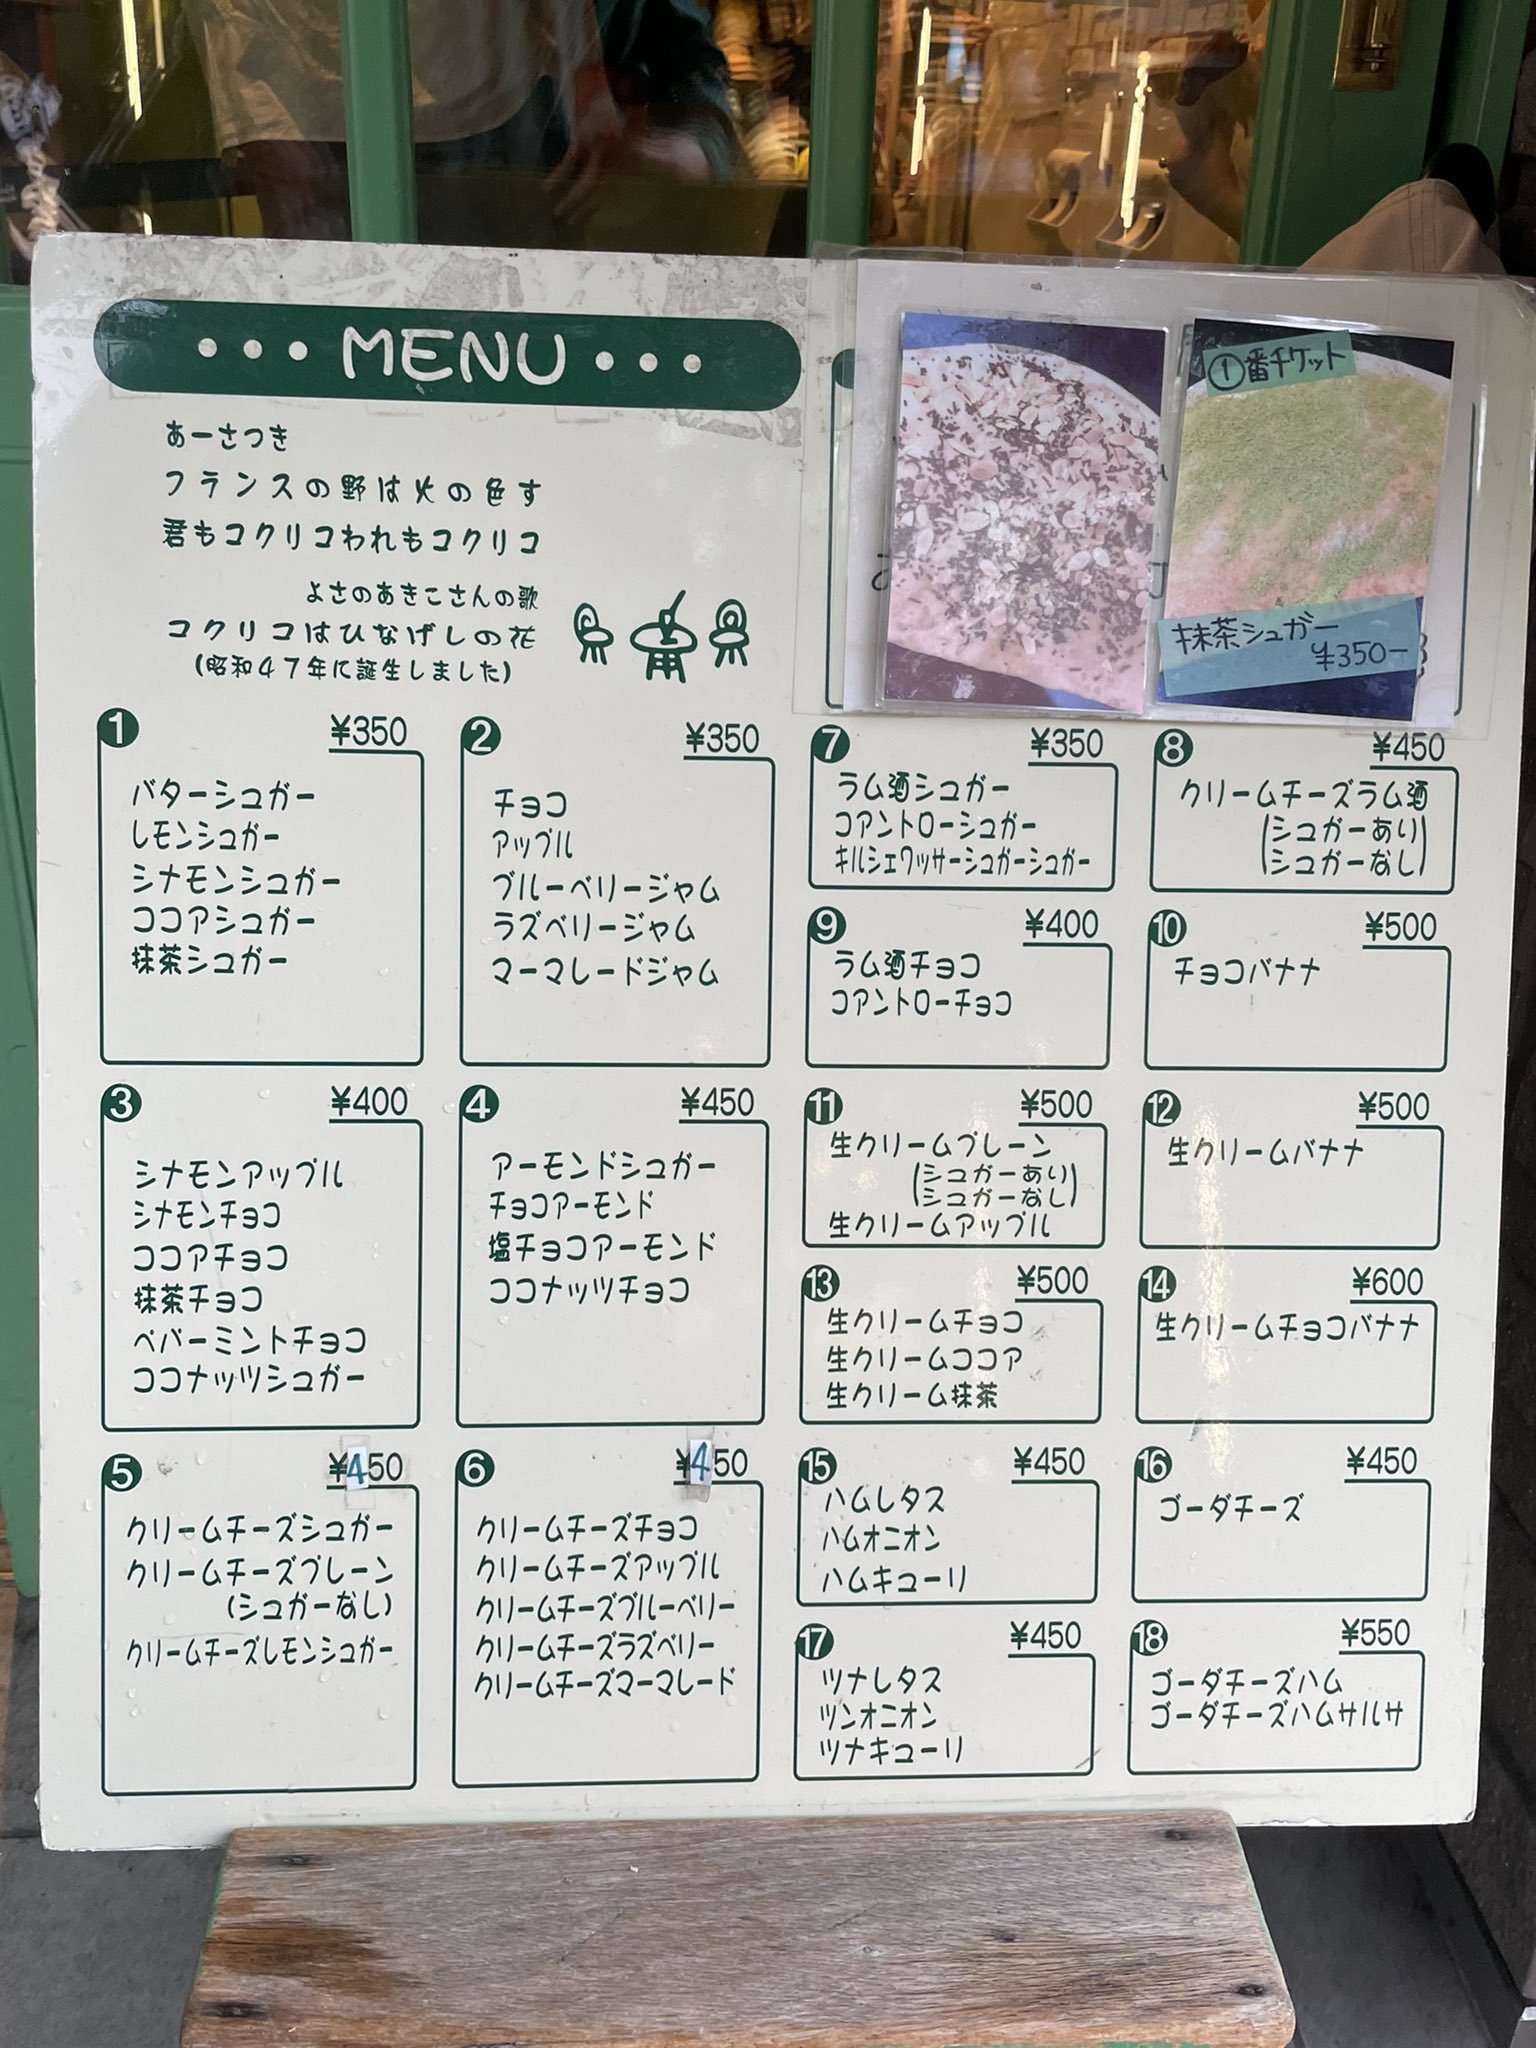 ・・・MENU・・・
あーさつき
フランスの野は火の色す
君もコクリコわれもコクリコ
よさのあきこさんの歌
コクリコはひなげしの花
(昭和47年に誕生しました)
①番チケット
抹茶シュガー
¥350-
1 ¥350
バターシュガー
レモンシュガー
シナモンシュガー
ココアシュガー
抹茶シュガー
2 ¥350
チョコ
アップル
ブルーベリージャム
ラズベリージャム
マーマレードジャム
3 ¥400
シナモンアップル
シナモンチョコ
ココアチョコ
抹茶チョコ
ペパーミントチョコ
ココナッツシュガー
4 ¥450
アーモンドシュガー
チョコアーモンド
塩チョコアーモンド
ココナッツチョコ
5 ¥450
クリームチーズシュガー
クリームチーズプレーン
(シュガーなし)
クリームチーズレモンシュガー
6 ¥450
クリームチーズチョコ
クリームチーズアップル
クリームチーズブルーベリー
クリームチーズラズベリー
クリームチーズマーマレード
7 ¥350
ラム酒シュガー
コアントローシュガー
キルシェワッサーシュガーシュガー
8 ¥450
クリームチーズラム酒
(シュガーあり)
(シュガーなし)
9 ¥400
ラム酒チョコ
コアントローチョコ
10 ¥500
チョコバナナ
11 ¥500
生クリームプレーン
(シュガーあり)
(シュガーなし)
生クリームアップル
12 ¥500
生クリームバナナ
13 ¥500
生クリームチョコ
生クリームココア
生クリーム抹茶
14 ¥600
生クリームチョコバナナ
15 ¥450
ハムレタス
ハムオニオン
ハムキューリ
16 ¥450
ゴーダチーズ
17 ¥450
ツナレタス
ツンオニオン
ツナキューリ
18 ¥550
ゴーダチーズハム
ゴーダチーズハムサルサ